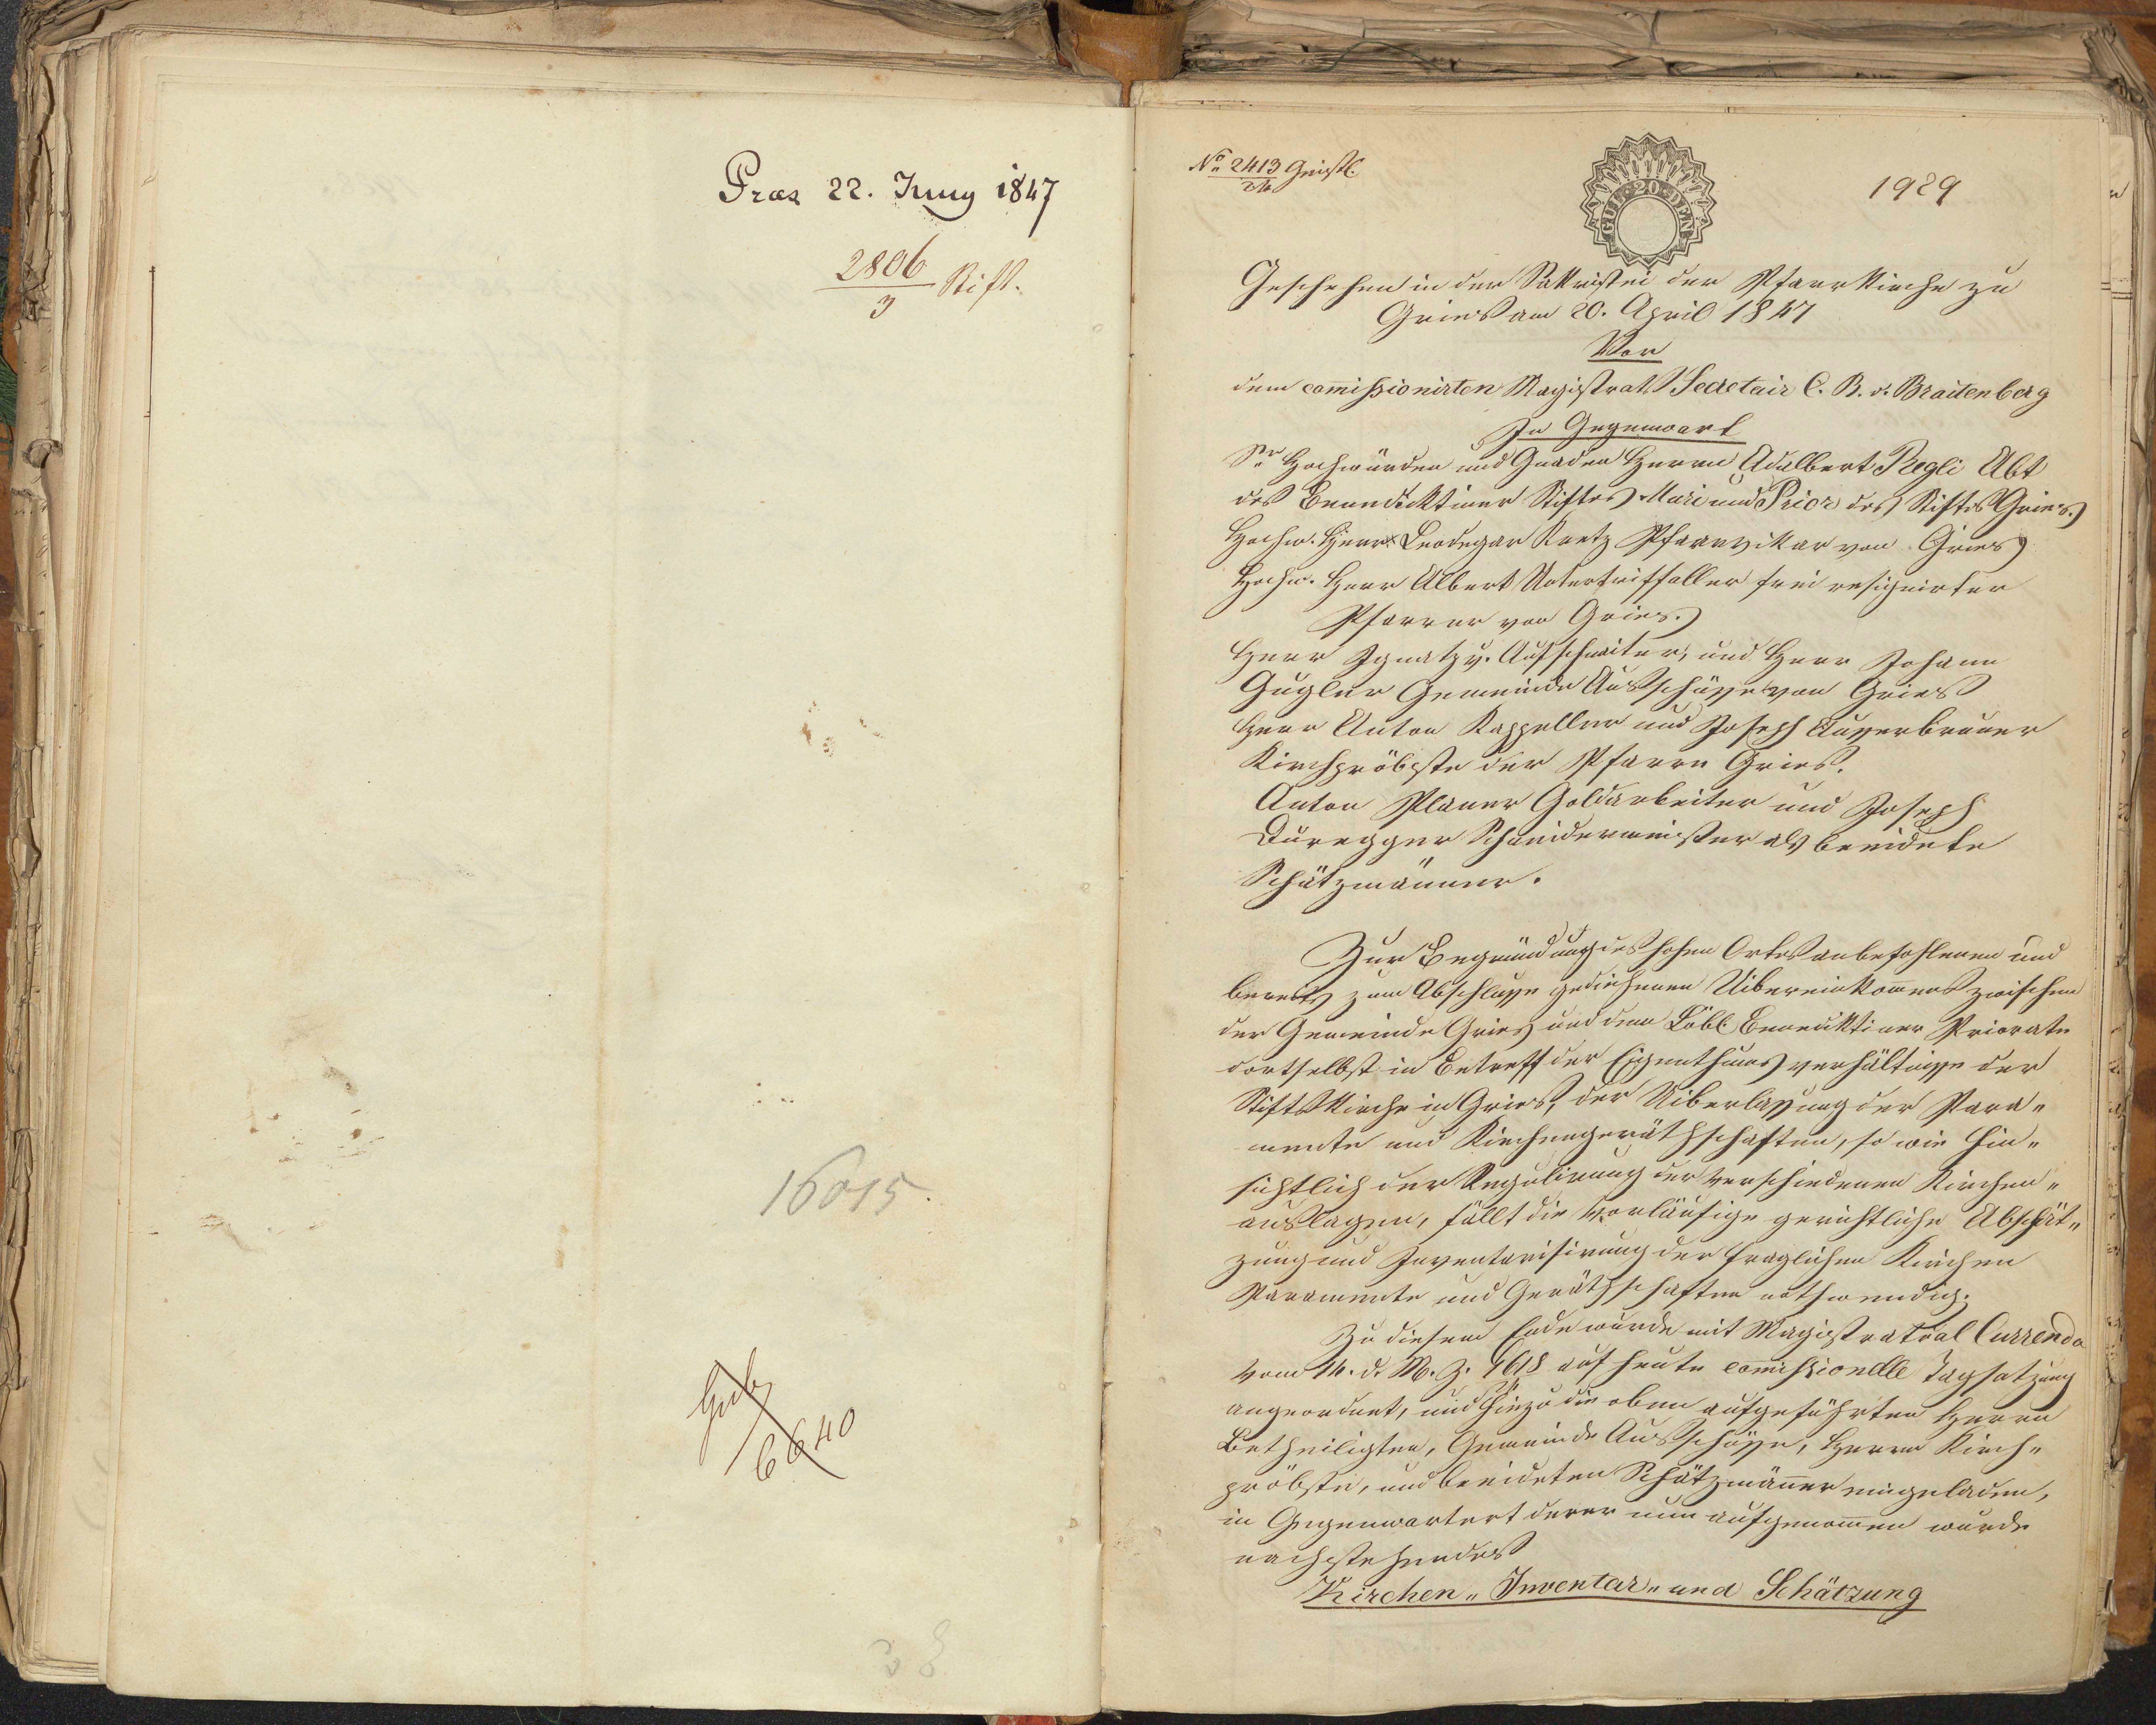 Præs 22. Juny 1847
2806
3
Stift.
16015.
Gub
6640
No 2413 Geistl.
GULDEN 20
1929
Geschehen in der Sakristei der Pfarrkirche zu
Gries am 20. April 1847
Vor
dem com̄ißionirten Magistrats Secretair C. B. v. Braitenberg
In Gegenwart
Sr Hochwürden und Gnaden Herrn Adalbert Regli Abt
des Benedicktiner Stiftes Muri und Prior des Stiftes Gries.
Hochw. Herr Leodegar Kretz Pfarrvikar von Gries
Hochw. Herr Albert Untertriffaller frei resignirter
Pfarrer von Gries.
Herr Ignatz v. Aufschnaiter, und Herr Johann
Gugler Gemeinde Ausschüsse von Gries
Herr Anton Kappeller und Joseph Außerbrunner
Kirchpröbste der Pfarre Gries.
Anton Planer Goldarbeiter und Joseph
Duregger Schneidermeister als beeidete
Schätzmänner.
Zur Begründung des hohen Ortes anbefohlenen und
bereits zum Abschlusse gediehenen Uibereinkom̄ens zwischen
der Gemeinde Gries und dem Löbl. Benediktiner Priorate
dortselbst in Betreff der Eigenthums verhältniße der
Stiftskirche in Gries, der Uiberlaßung der Para„
mente und Kirchengeräthschaften, so wie hin„
sichtlich der Regulirung der verschiedenen Kirchen„
auslagen, fällt die vorläufige gerichtliche Abschät„
zung und Inventarisirung der fraglichen Kirchen
Paramente und Geräthschaften nothwendig.
Zu diesem Ende wurde mit Magistratual Currenda
vom 14. d. M. Z. 1618 auf heute com̄ißionelle Tagsatzung
angeordnet, und hiezu die oben aufgeführten Herrn
Betheiligten, Gemeinde Ausschüsse, Herrn Kirch„
pröbste, und beeideten Schätzmän̄er eingeladen,
in Gegenwartert derer nun aufgenom̄en wurde
nachstehendes
Kirchen„ Inventar„ und Schätzung